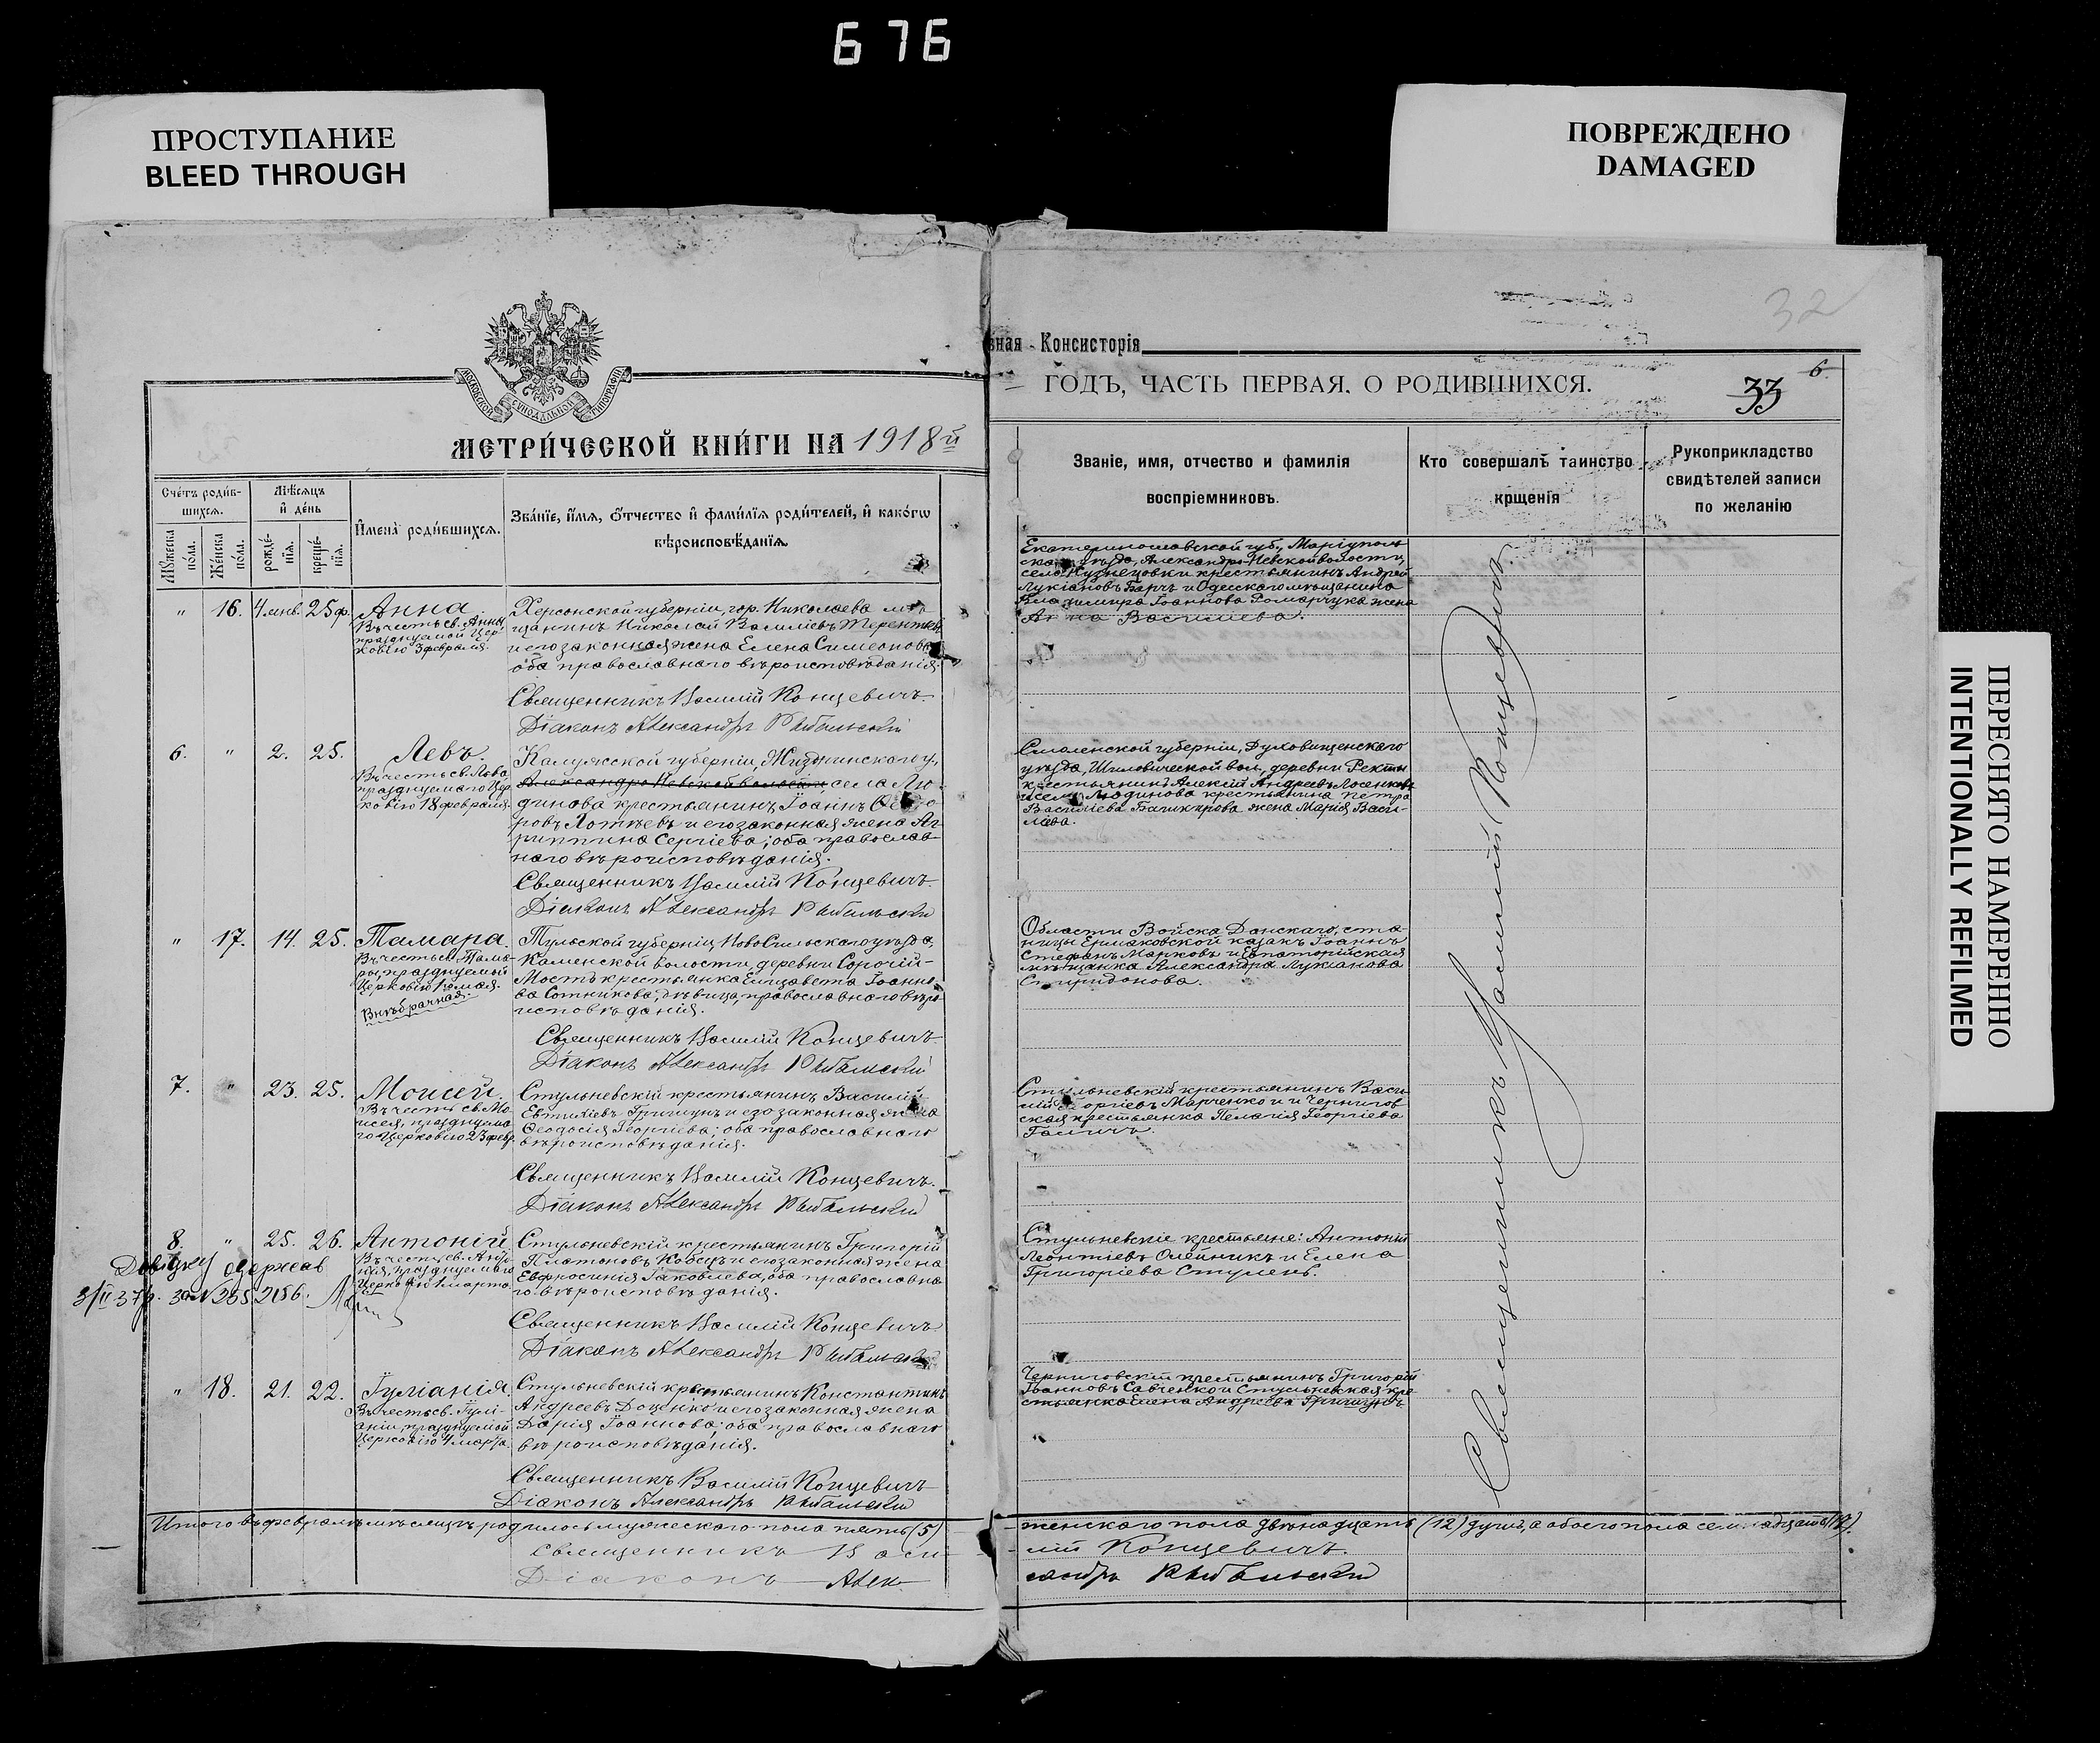 676
ПРОСТУПАНИЕ
BLEED THROUGH
ПОВРЕЖДЕНО
DAMAGED
ПЕРЕСНЯТО НАМЕРЕННО
INTENTIONALLY REFILMED
32
МОСКОВСКОЙ СѴНОДАЛЬНОЙ ТИПОГРАФІИ
МЕТРИ́ЧЕСКОЙ КНИ́ГИ НА 1918й
вная Консисторія
ГОДЪ, ЧАСТЬ ПЕРВАЯ. О РОДИВШИХСЯ.
33
6.
Сче́тъ роди́в-
шихсѧ.
Мѹ́жеска по́ла.
Же́нска по́ла.
Мѣ́сѧцъ и де́нь
рожде́-
нїѧ.
креще́-
нїѧ.
Имена̀ роди́вшихсѧ.
Зва́нїе, и́мѧ, ѻ́тчество и фами́лїѧ роди́телей, и како́гѡ
вѣроисповѣ́данїѧ.
Званіе, имя, отчество и фамилія
воспріемниковъ.
Кто совершалъ таинство
крщенія
Рукоприкладство
свидѣтелей записи
по желанію
" 16. 4 янв. 25 ф.
Анна
Въ честь св. Анны,
празднуемой Цер-
ковію 3 февраля.
Херсонской губерніи, гор. Николаева мѣ-
щанинъ Николай Василіевъ Терентьевъ
и его законная жена Елена Симеонова,
оба православнаго вѣроисповѣданія.
Священникъ Василій Концевичъ.
Діаконъ Александръ Рыбальскій
Екатеринославской губ., Маріуполь
скаго уѣзда, Александро-Невской волости,
села Кузнецовки крестьянинъ Андрей
Лукіановъ и Одесскаго мѣщанина
Владимира Іоаннова Романчука жена
Анна Василіева.
6. " 2. 25.
Левъ.
Въ честь св. Льва,
празднуемаго Цер-
ковію 18 февраля.
Калужской губерніи, Жиздринскаго у.,
Александро-Невской волости села Лю-
динова крестьянинъ Іоаннъ Ѳеодо
ровъ Хотѣевъ и его законная жена Аг-
риппина Сергіева; оба православ-
наго вѣроисповѣданія.
Священникъ Василій Концевичъ.
Діаконъ Александръ Рыбальскій
Смоленской губерніи, Духовщенскаго
уѣзда, Шиловической вол., деревни Ректы
крестьянинъ Алексій Андреевъ Лосенковъ
и села Людинова крестьянина Петра
Василіева жена Марія Васи-
лієва.
" 17. 14. 25.
Тамара.
Въ честь св. Тама-
ры, празднуемой
Церковію 1 мая.
Внѣбрачная.
Тульской губерніи, Новосильскаго уѣзда,
Каменской волости, деревни Сорочій-
Мостъ крестьянка Елизавета Іоанно-
ва Сотникова, дѣвица, православнаго вѣро-
исповѣданія.
Священникъ Василій Концевичъ
Діаконъ Александръ Рыбальскій
Области Войска Донскаго, ста-
ницы Ермаковской казакъ Іоаннъ
Стефанъ Марковъ и Евпаторійская
мѣщанка Александра Лукіанова
Спиридонова.
7. " 23. 25.
Моисей.
Въ честь св. Мо-
исея, празднуема
го Церковію 23 февр.
Стульневскій крестьянинъ Василій
Евтихіевъ Гришунъ и его законная жена
Ѳеодосія Георгіева; оба православнаго
вѣроисповѣданія.
Священникъ Василій Концевичъ.
Діаконъ Александръ Рыбальскій
Стульневскій крестьянинъ Васи-
лій Георгіевъ Марченко и Чернигов-
ская крестьянка Пелагія Георгіева
Галичъ.
8. " 25. 26.
Антоній
Въ честь св. Анто-
нія, празднуемаго
Церковію 1 марта.
Довідку одержав
3/II 37р.
Стульневскій крестьянинъ Григорій
Платоновъ Кобецъ и его законная жена
Евфросинія Іаковлева, оба православна-
го вѣроисповѣданія.
Священникъ Василій Концевичъ
Діаконъ Александръ Рыбальскій
Стульневскіе крестьяне: Антоній
Леонтіевъ Олейникъ и Елена
Григоріева Стулень.
" 18. 21. 22.
Іуліанія.
Въ честь св. Іулі-
аніи, празднуемой
Церковію 4 марта.
Стульневскій крестьянинъ Константинъ
Андреевъ Доценко и его законная жена
Дарія Іоаннова; оба православнаго
вѣроисповѣданія.
Священникъ Василій Концевичъ
Діаконъ Александръ Рыбальскій
Черниговскій крестьянинъ Григорій
Іоанновъ Савченко и Стульневская кре-
стьянка Елена Андреева Гришунъ.
Священникъ Василій Концевичъ
Итого въ февралѣ мѣсяцѣ родилось мужескаго пола пять (5) женскаго пола двѣнадцать (12) душъ, а обоего пола семнадцать (17).
Священникъ Василій Концевичъ.
Діаконъ Александръ Рыбальскій